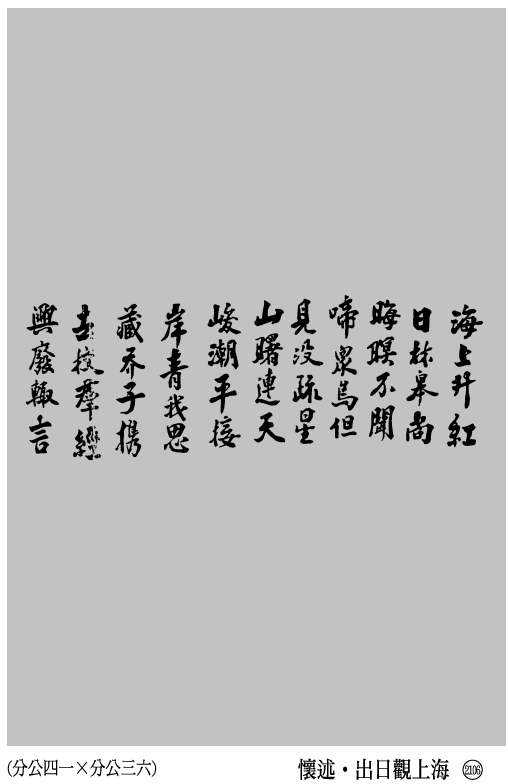 海上升紅
日林皋尚
晦暝不聞
啼眾鳥但
見没疏星
山曙連天
峻潮平接
岸青我思
藏乔子携
挍群經
興廢輒言
2106 海上觀日出・述懷
(六三公分×一四公分)